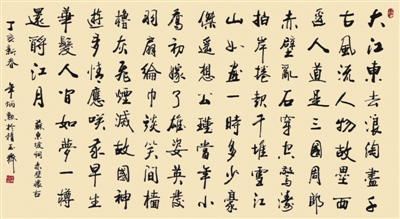 大江東去浪淘盡千
古風流人物故壘西
邊人道是三國周郎
赤壁亂石穿空驚濤
拍岸捲起千堆雪江
山如畫一時多少豪
傑遙想公瑾當年小
喬初嫁了雄姿英發
羽扇綸巾談笑間檣
櫓灰飛煙滅故國神
遊多情應笑我早生
華髮人間如夢一樽
還酹江月
蘇東坡詞赤壁懷古
丁亥新春